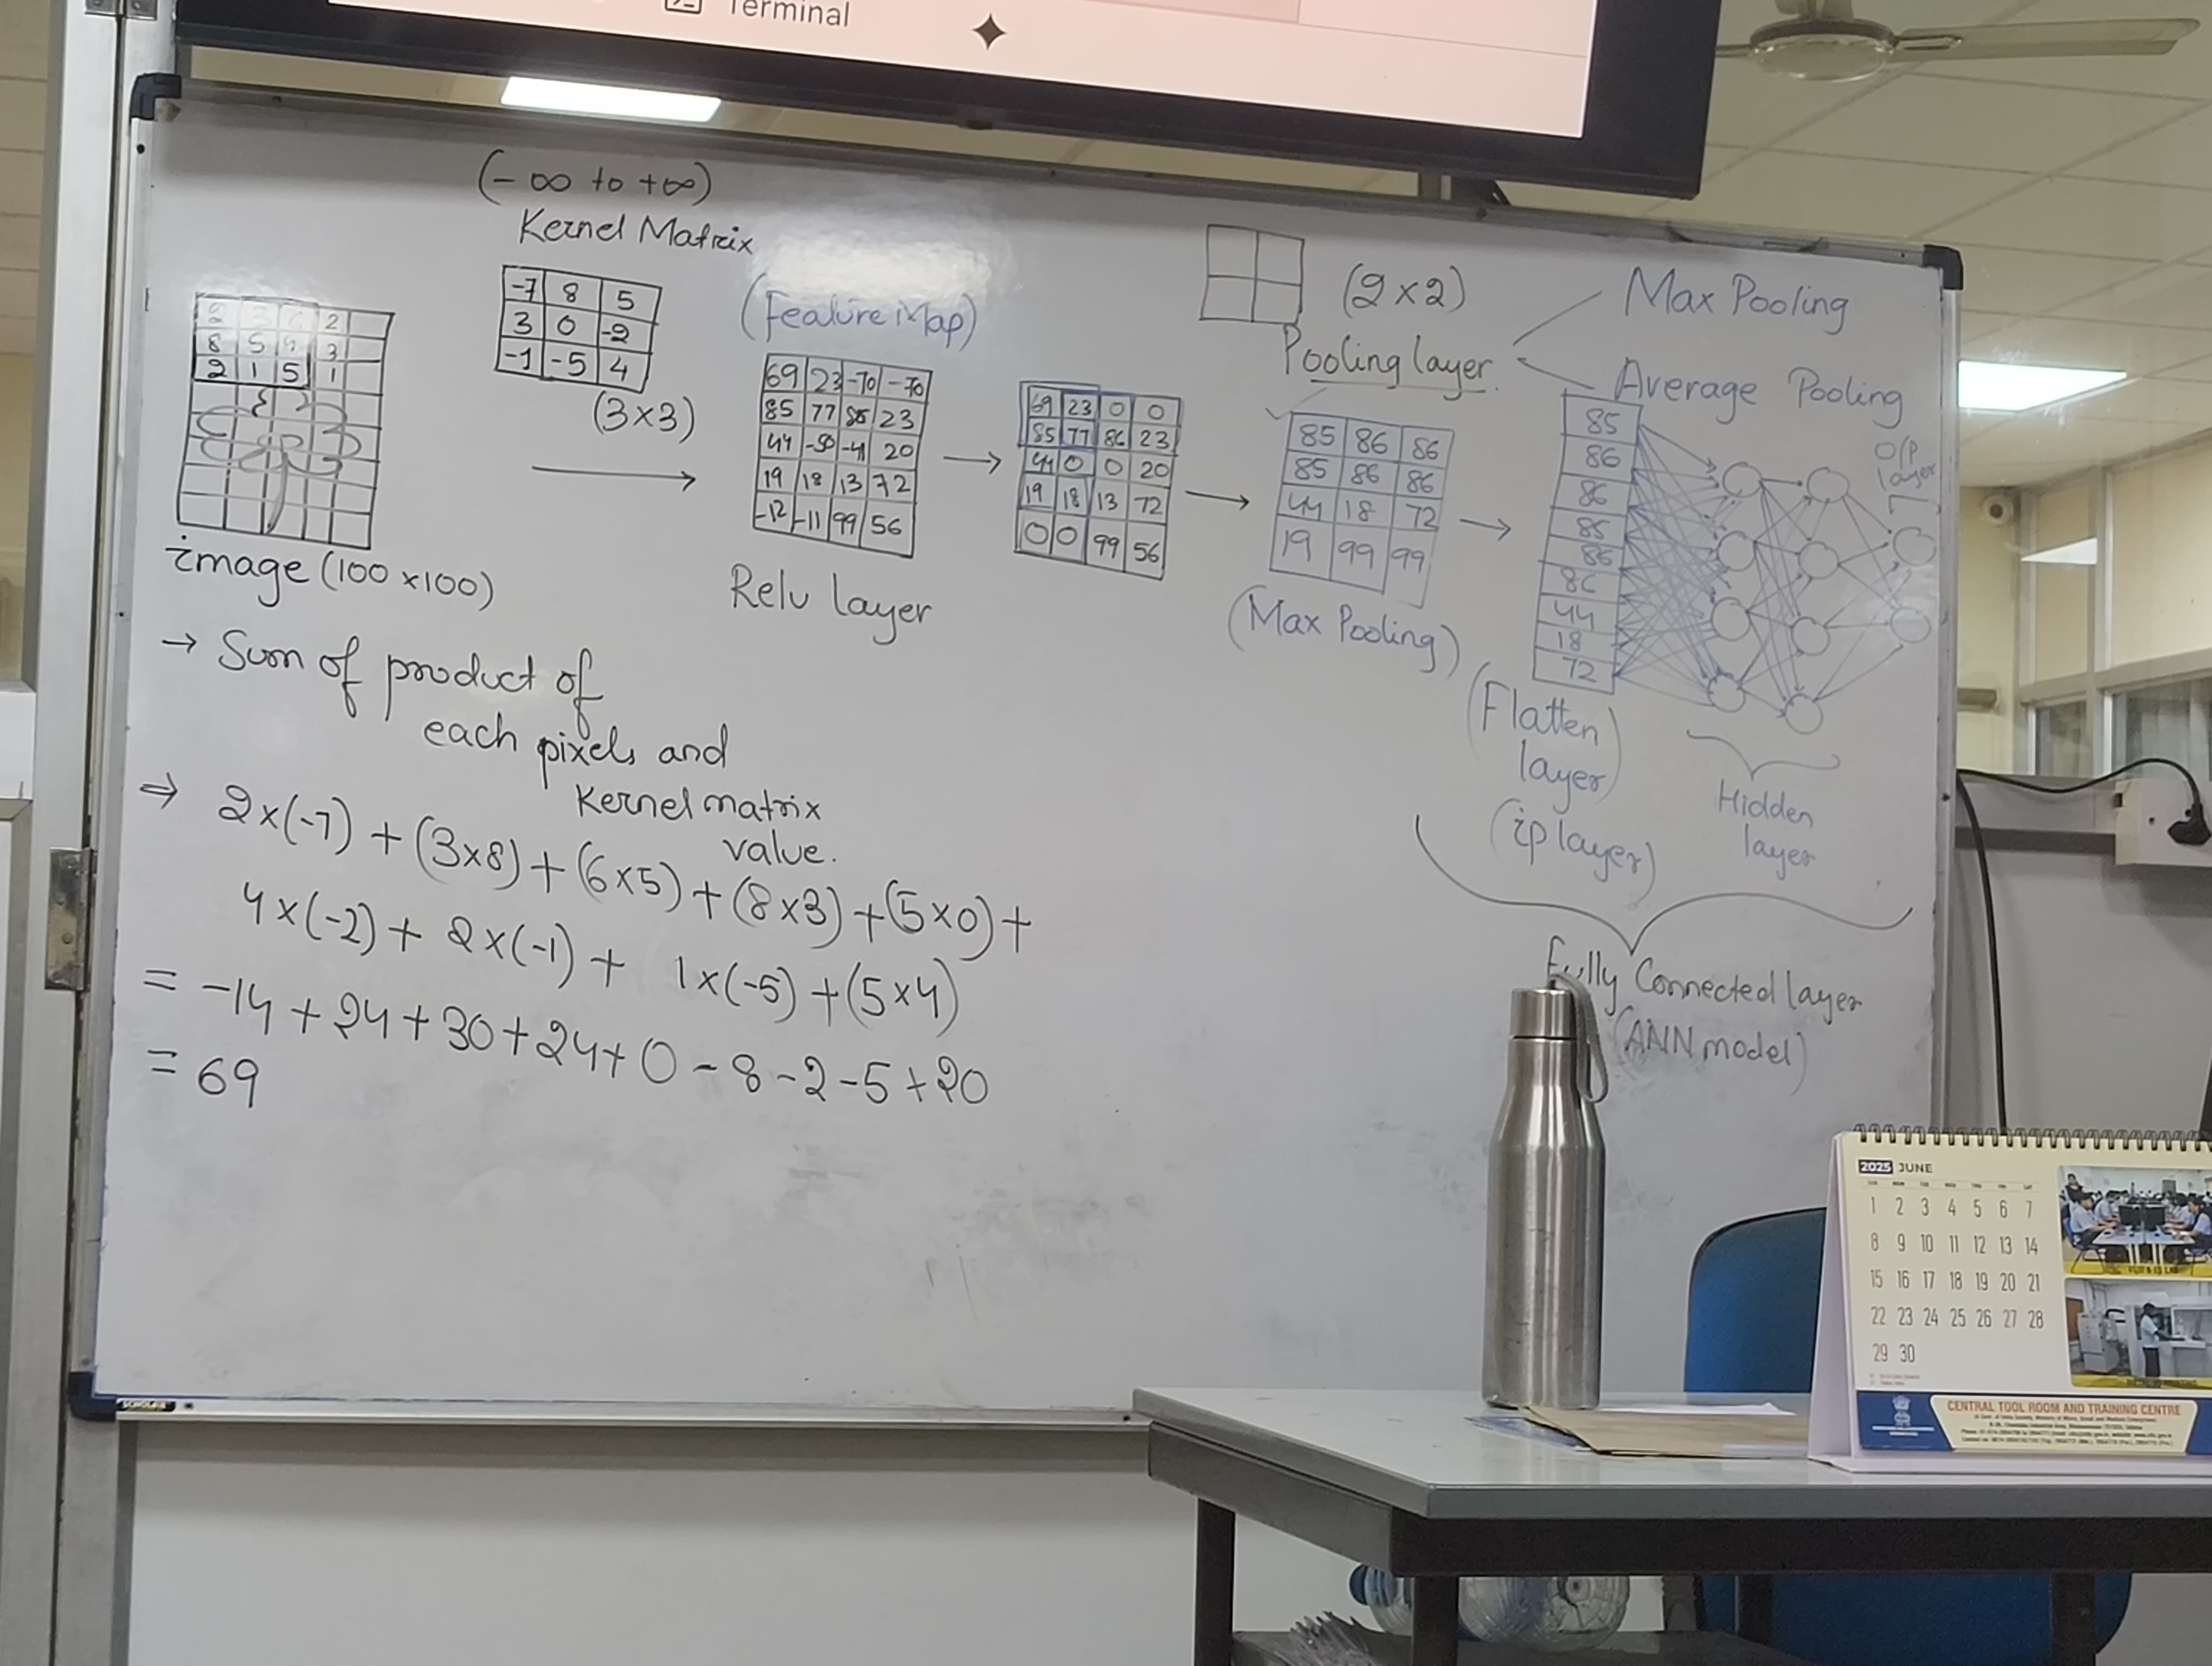 Terminal
(-∞ to +∞)
Kernel Matrix
-7 8 5
3 0 -2
-1 -5 4
(3×3)
2 3 6 2
8 5 4 3
2 1 5 1
image (100×100)
(Feature Map)
69 23 -70 -70
85 77 86 23
44 -50 -41 20
19 18 13 72
-12 -11 99 56
Relu layer
69 23 0 0
85 77 86 23
44 0 0 20
19 18 13 72
0 0 99 56
(2×2)
Pooling layer.
Max Pooling
Average Pooling
85 86 86
85 86 86
44 18 72
19 99 99
(Max Pooling)
85
86
86
85
86
86
44
18
72
(Flatten
layer)
(ip layer)
Hidden
layer
O/P
layer
Fully Connected layer
(ANN model)
→ Sum of product of
each pixels and
Kernel matrix
value.
⇒ 2×(-7) + (3×8) + (6×5) + (8×3) + (5×0) +
4×(-2) + 2×(-1) + 1×(-5) + (5×4)
= -14 + 24 + 30 + 24 + 0 - 8 - 2 - 5 + 20
= 69
2025 JUNE
1 2 3 4 5 6 7
8 9 10 11 12 13 14
15 16 17 18 19 20 21
22 23 24 25 26 27 28
29 30
CENTRAL TOOL ROOM AND TRAINING CENTRE